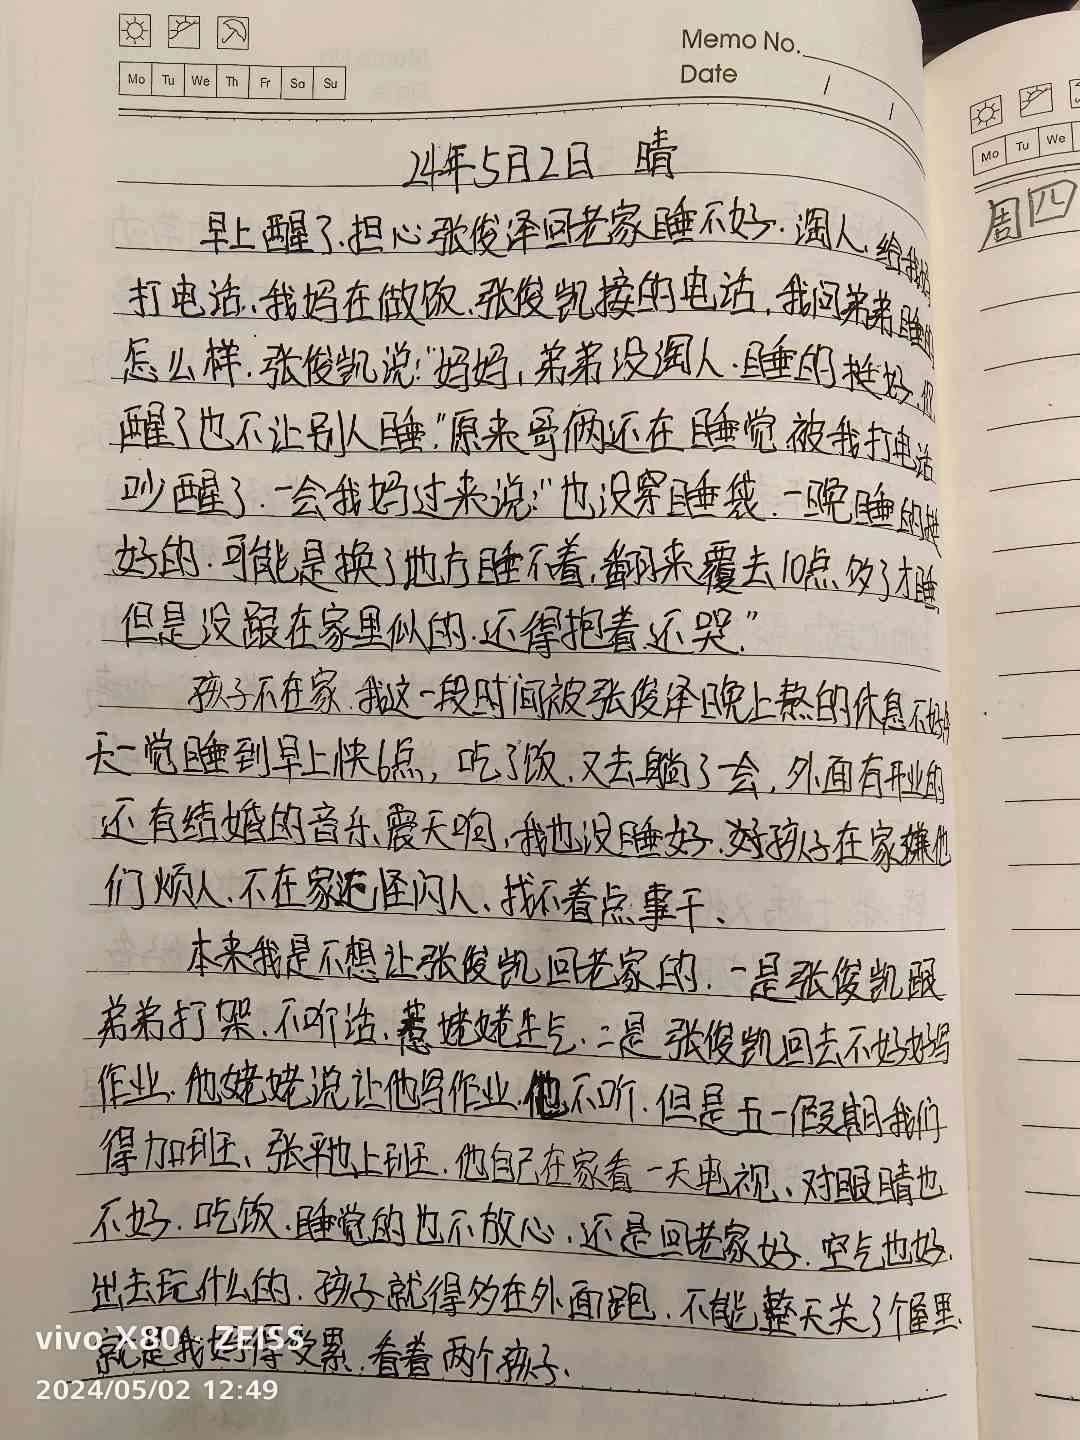 Memo No.
Mo Tu We Th Fr Sa Su
Date / /
24年5月2日 晴
早上醒了.担心张俊泽回老家睡不好.淘人.给我妈
打电话、我妈在做饭、张俊凯接的电话,我问弟弟睡的
怎么样.张俊凯说:"妈妈,弟弟没淘人.睡的挺好.
醒了也不让别人睡."原来哥俩还在睡觉被我打电话
吵醒了.一会我妈过来说:"也没穿睡袋.一晚睡的挺
好的.可能是换了地方睡不着,翻来覆去10点多了才睡
但是没跟在家里似的.还得抱着.还哭."
孩子不在家.我这一段时间被张俊泽晚上熬的休息不好
天一觉睡到早上快6点,吃了饭.又去躺了一会,外面有开业的
还有结婚的音乐、震天响,我也没睡好.孩子在家嫌他
们烦人.不在家还怪闪人、找不着点事干、
本来我是不想让张俊凯回老家的.一是张俊凯跟
弟弟打架.不听话.惹姥姥生气.二是张俊凯回去不好好写
作业.他姥姥说让他写作业.他不听.但是五一假期我们
得加班、张平他上班.他自己在家看一天电视、对眼睛也
不好.吃饭.睡觉的也不放心.还是回老家好.空气也好.
出去玩什么的.孩子就得多在外面跑.不能整天关了个屋里.
就是我妈得受累.看着两个孩子.
vivo X80 · ZEISS
2024/05/02 12:49
Mo Tu We
周四